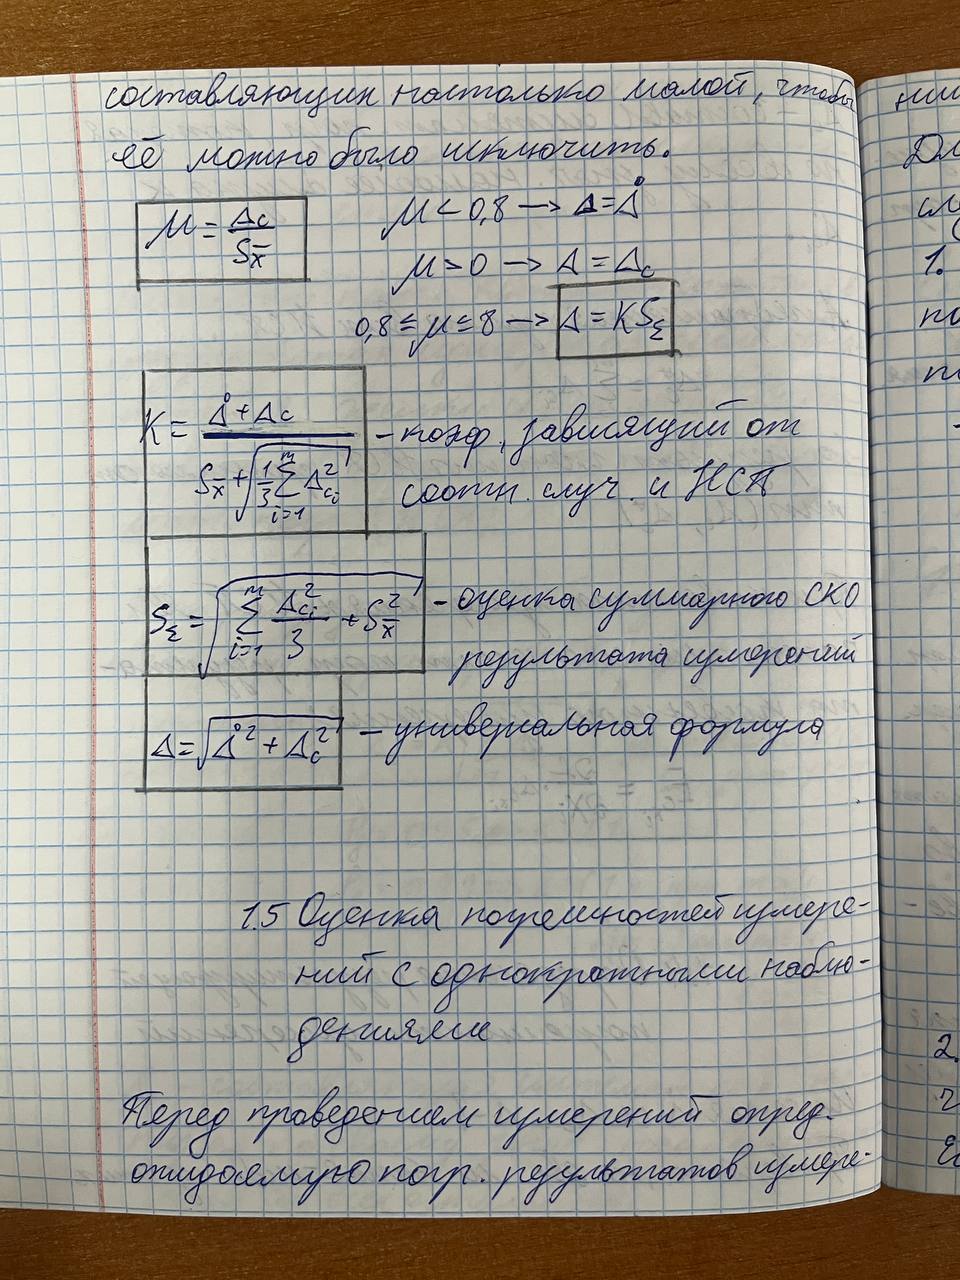 составляющих настолько малой, чтобы
её можно было исключить.
μ = Δc / Sx̄
μ < 0,8 → Δ = Δ̊
μ > 0 → Δ = Δc
0,8 ≤ μ ≤ 8 → Δ = KSΣ
K = (Δ̊ + Δc) / (Sx̄ + √(1/3 Σ_{i=1}^{m} Δ²ci)) – коэф., зависящий от
соотн. случ. и НСП
SΣ = √(Σ_{i=1}^{m} Δ²ci / 3 + S²x̄) – оценка суммарного СКО
результата измерений
Δ = √(Δ̊² + Δc²) – универсальная формула
1.5 Оценка погрешностей измере-
ний с однократными наблю-
дениями
Перед проведением измерений опред.
ожидаемую погр. результатов измере-
1.
2.